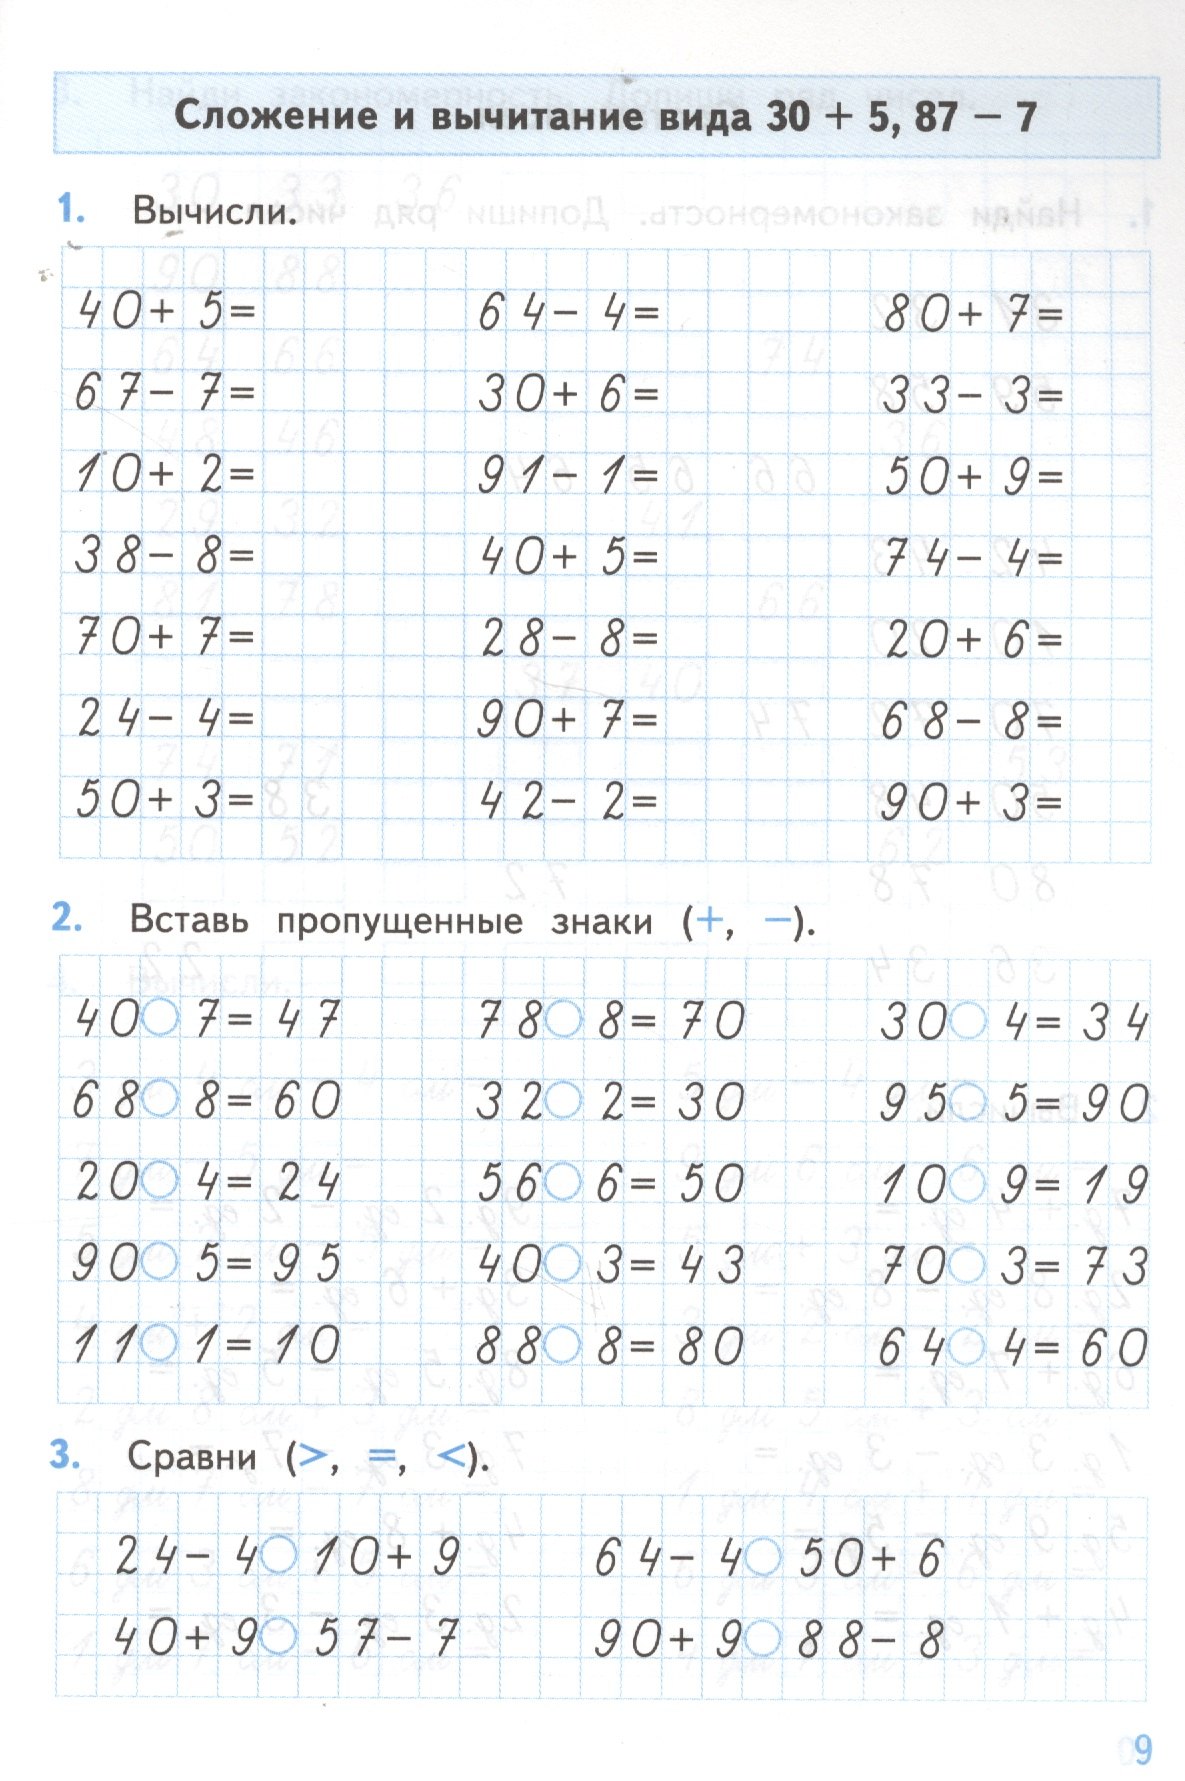 Сложение и вычитание вида 30 + 5, 87 − 7
1. Вычисли.
40+ 5= 64− 4= 80+ 7=
67− 7= 30+ 6= 33− 3=
10+ 2= 91− 1= 50+ 9=
38− 8= 40+ 5= 74− 4=
70+ 7= 28− 8= 20+ 6=
24− 4= 90+ 7= 68− 8=
50+ 3= 42− 2= 90+ 3=
2. Вставь пропущенные знаки (+, −).
40○ 7= 47 78○ 8= 70 30○ 4= 34
68○ 8= 60 32○ 2= 30 95○ 5= 90
20○ 4= 24 56○ 6= 50 10○ 9= 19
90○ 5= 95 40○ 3= 43 70○ 3= 73
11○ 1= 10 88○ 8= 80 64○ 4= 60
3. Сравни (>, =, <).
24− 4○ 10+ 9 64− 4○ 50+ 6
40+ 9○ 57− 7 90+ 9○ 88− 8
9